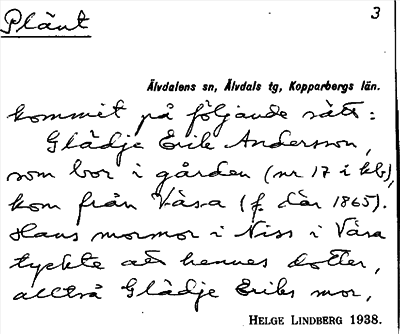 Plänt
3
Älvdalens sn, Älvdals tg, Kopparbergs län.
kommit på följande sätt:
Glådje Erik Andersson,
som bor i gården (nr 17 i kb),
kom från Våsa (f. där 1865).
Hans mormor i Niss i Våsa
tyckte att hennes dotter,
alltså Glådje Eriks mor,
HELGE LINDBERG 1938.